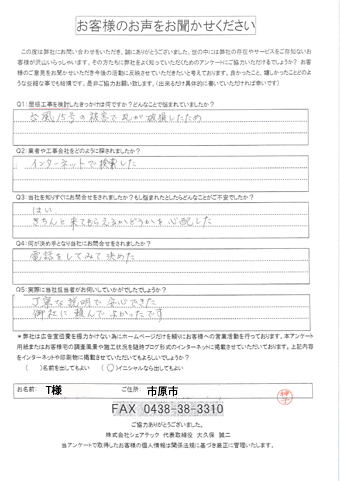 お客様のお声をお聞かせください
この度は弊社にお問い合わせをいただき、誠にありがとうございました。世の中には弊社の存在やサービスをご存知ないお
客様が沢山いらっしゃいます。その方たちに弊社をよく知っていただくためのアンケートにご協力いただけるでしょうか？ お
客様のご意見をお聞かせいただき今後の活動に反映させていただきたいと考えております。良かったこと、嬉しかったことどのよ
うな些細な事でも結構です。是非ご協力お願い致します。（出来るだけ具体的に書いていただければ幸いです）
Q1：屋根工事を検討したきっかけは何ですか？どんなことで悩まれていましたか？
台風15号の被害で瓦が破損したため
Q2：業者や工事会社をどのように探されましたか？
インターネットで検索した
Q3：当社を知りすぐにお問合せをされましたか？もし悩まれたとしたらどんなことがご不安でしたか？
はい
きちんと来てもらえるかどうかを心配した
Q4：何が決め手となり当社にお問合せをされましたか？
電話をしてみて決めた
Q5：実際に当社担当者がお伺いしていかがでしたでしょうか？
丁寧な説明で安心できた
御社に頼んでよかったです
＊弊社は広告宣伝費を極力かけない為にホームページだけを頼りにお客様への営業活動を行っております。本アンケート
用紙またはお客様宅の調査風景や施工状況を随時ブログ形式のインターネットに掲載させていただいております。上記内容
をインターネットや印刷物に掲載させていただいてもよろしいでしょうか？
（　）名前を出してもよい （○）イニシャルなら出してもよい
お名前： T様 ご住所： 市原市
FAX 0438-38-3310
ご協力ありがとうございました。
株式会社シェアテック 代表取締役 大久保 誠二
当アンケートで取得したお客様の個人情報は関係法規に基づき厳正に管理いたします。